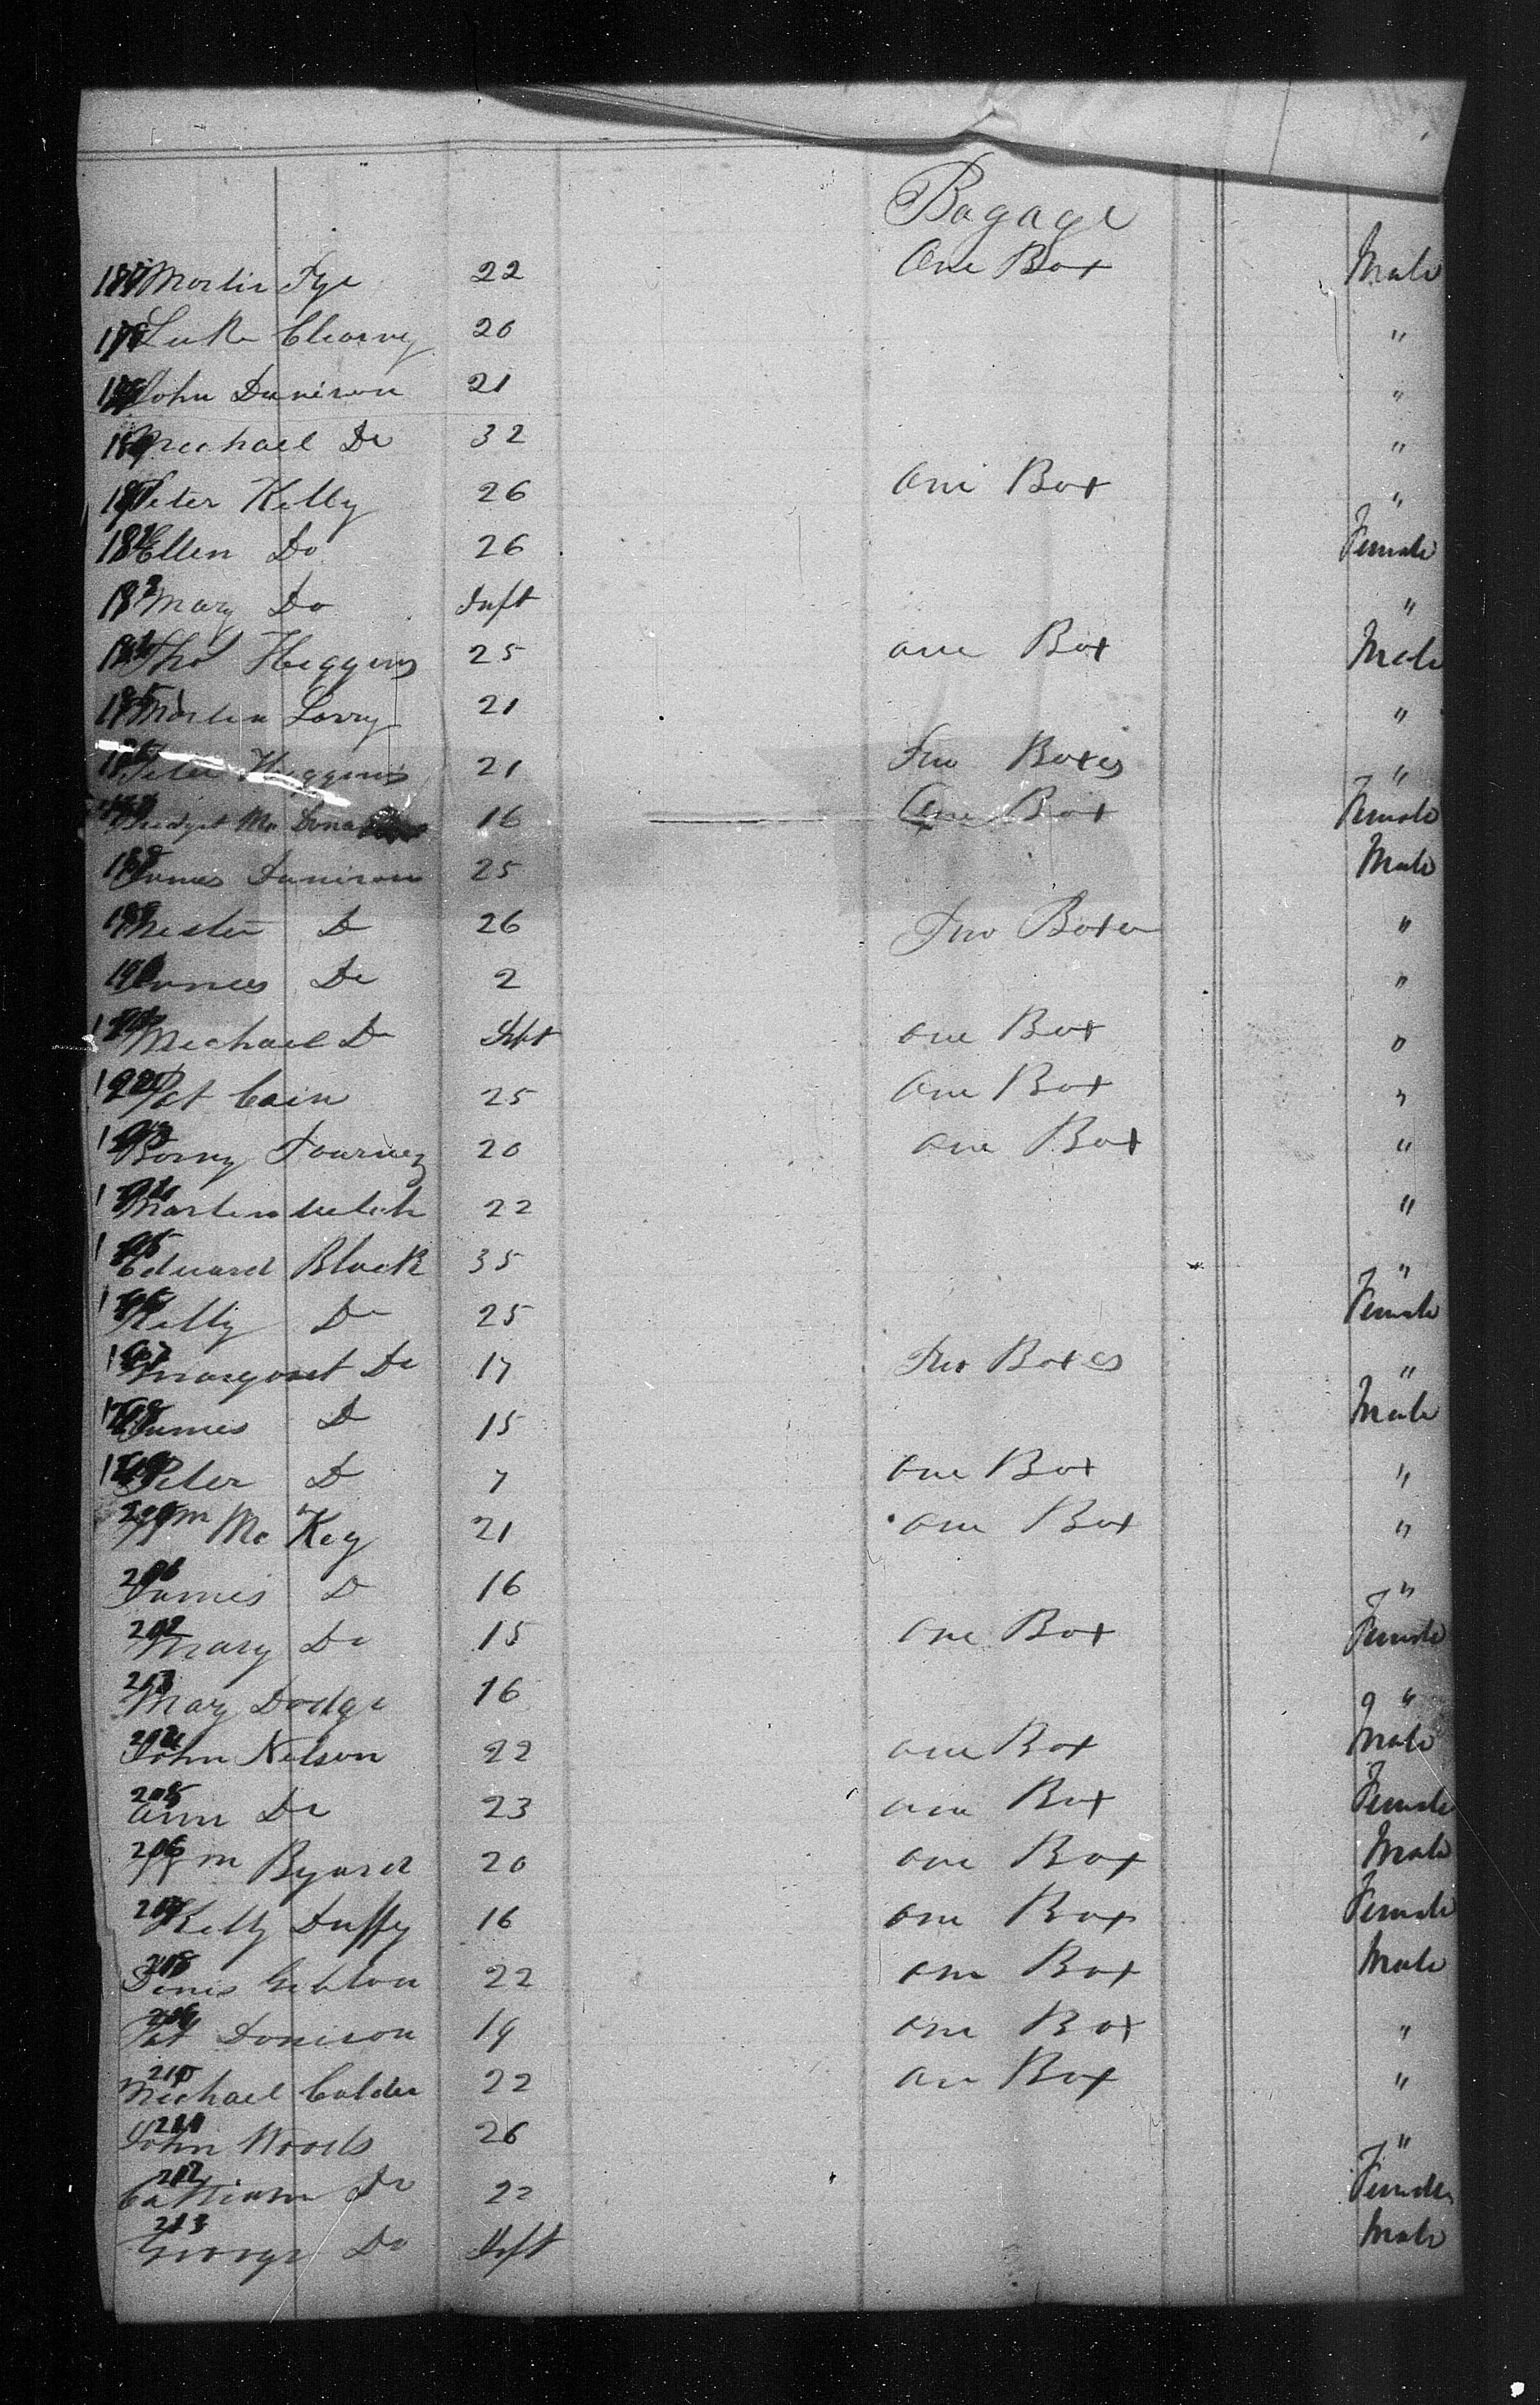 Bagage
177 Martin Fye 22 One Box Male
178 Luke Clearny 20 "
179 John Dunison 21 "
180 Mechael Do 32 "
181 Peter Kelly 26 One Box "
182 Ellen Do 26 Female
183 Mary Do Inft "
184 Tho Heggins 25 one Box Male
185 Martin Lavry 21 "
186 Peter Heggins 21 Two Boxes "
187 Bridget Mc 16 One Box Female
188 James Dunison 25 Male
189 D 26 Two Boxes "
190 James Do 2 "
191 Mechael D Inft one Box "
192 Pat Cain 25 One Box "
193 20 one Box "
194 Martin welch 22 "
195 Edward Black 35 "
196 Kelly D 25 Female
197 Margaret Do 17 Two Boxes "
198 James D 15 Male
199 Peter D 7 one Box "
200 Wm Mc Key 21 one Box "
201 James D 16 "
202 Mary Do 15 one Box Female
203 Mary Dodge 16 "
204 John Nelson 22 one Box Male
205 Ann Do 23 one Box Female
206 Wm Byard 20 one Box Male
207 Kelly Duffy 16 one Box Female
208 22 one Box Male
209 Pat Donison 19 one Box "
210 Mechael Calder 22 one Box "
211 John Woods 26 "
212 Do 22 Female
213 George Do Inft Male